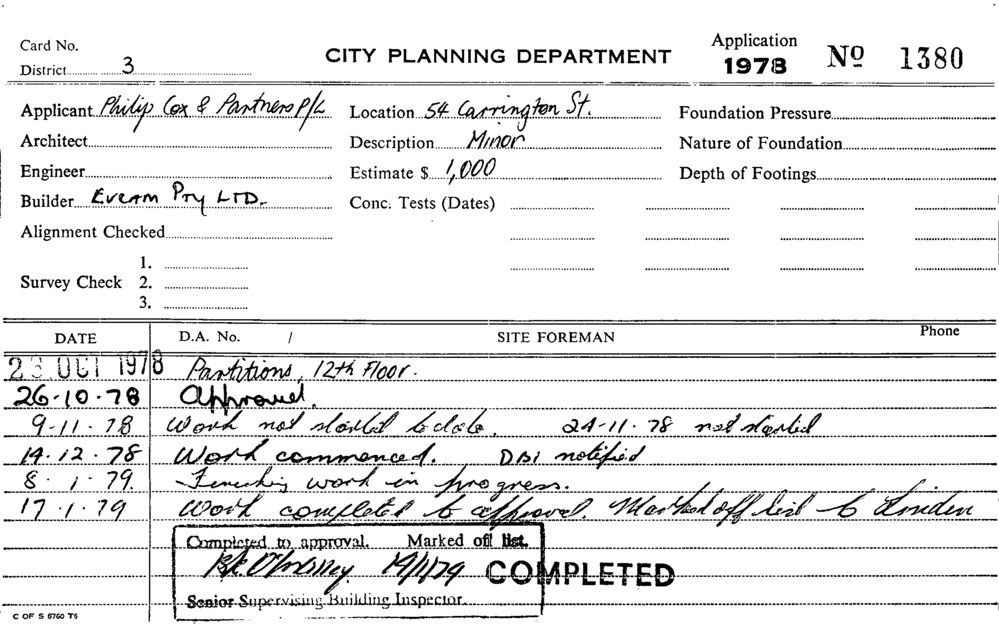 Card No.
District 3
CITY PLANNING DEPARTMENT
Application
1978
No 1380
Applicant Philip Cox & Partners P/L
Location 54 Carrington St.
Foundation Pressure
Architect
Description Minor
Nature of Foundation
Engineer
Estimate $ 1,000
Depth of Footings
Builder Pty LTD.
Conc. Tests (Dates)
Alignment Checked
Survey Check
1.
2.
3.
DATE D.A. No. / SITE FOREMAN Phone
23 OCT 1978 Partitions, 12th Floor.
26-10-78 Approved.
9-11-78 Work not started to date. 24-11-78 not started
14.12.78 Work commenced. DBI notified
8.1.79. Finishing work in progress.
17.1.79 Work completed to approval. Marked off list to
Completed to approval. Marked off list.
19/1/79 COMPLETED
Senior Supervising Building Inspector.
C OF S 6760 T5